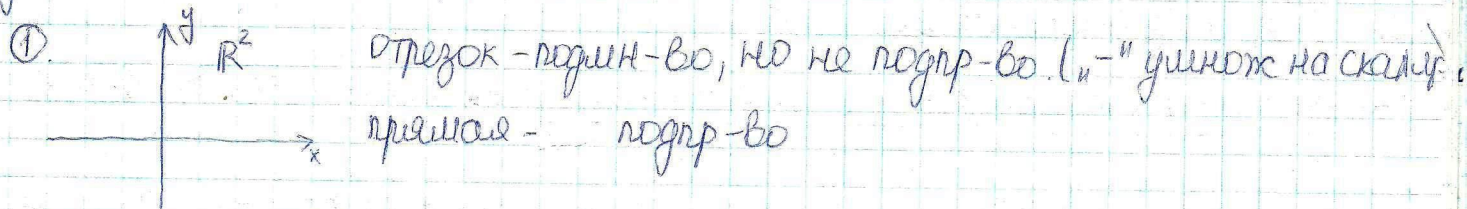 ①. y ℝ² отрезок - подмн-во, но не подпр-во. („-" умнож на скаляр).
x прямая - подпр-во